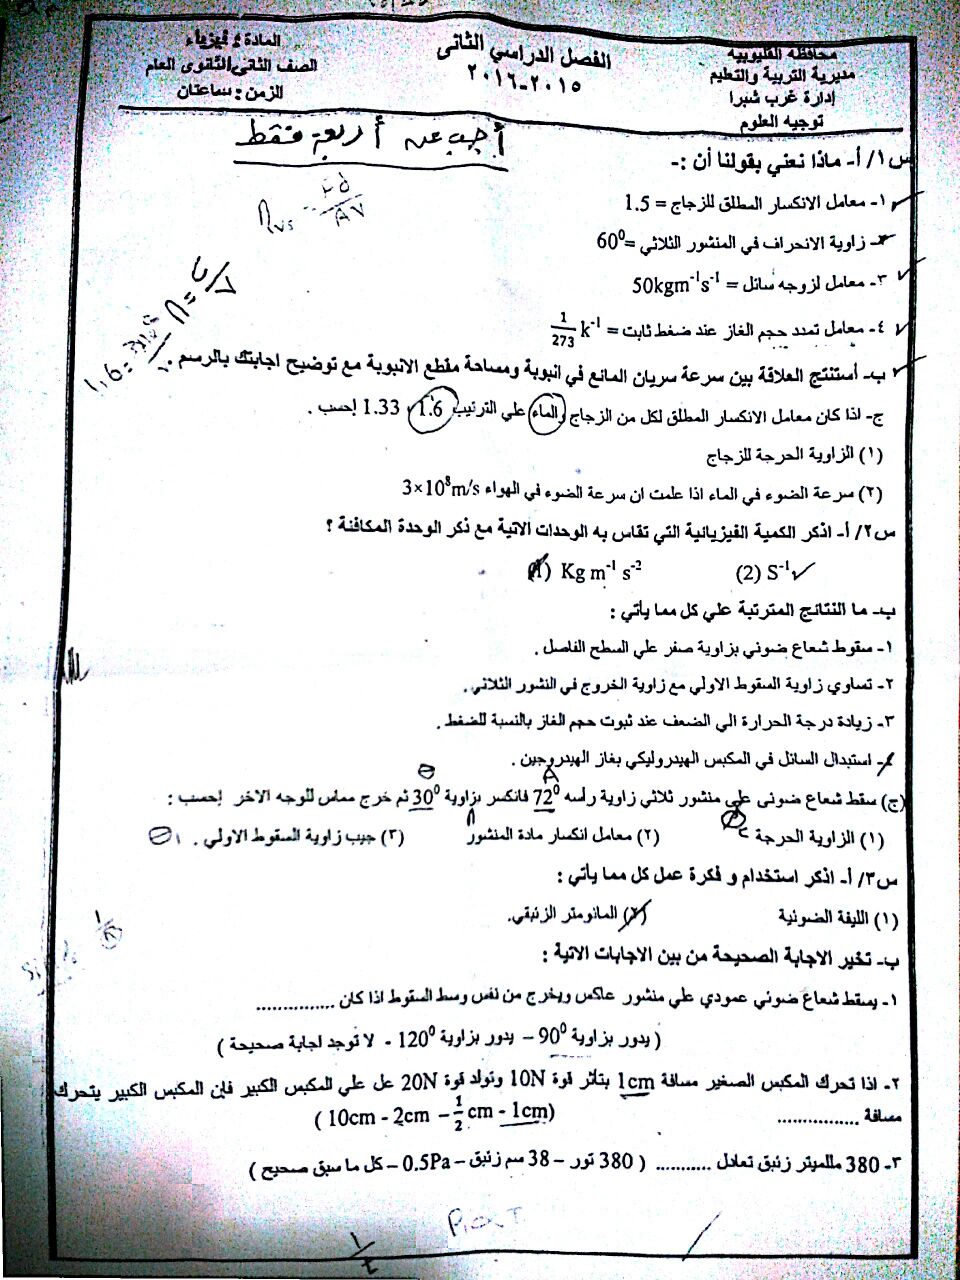 محافظة القليوبية
مديرية التربية والتعليم
إدارة غرب شبرا
توجيه العلوم
الفصل الدراسي الثانى
٢٠١٥-٢٠١٦
المادة : فيزياء
الصف الثاني الثانوى العام
الزمن : ساعتان
أجب عن أربعة فقط
س١/ أ- ماذا نعني بقولنا أن :-
١- معامل الانكسار المطلق للزجاج = 1.5
٢- زاوية الانحراف في المنشور الثلاثي =60⁰
٣- معامل لزوجه سائل = 50kgm⁻¹s⁻¹
٤- معامل تمدد حجم الغاز عند ضغط ثابت = 1/273 k⁻¹
ب- أستنتج العلاقة بين سرعة سريان المائع في انبوبة ومساحة مقطع الانبوبة مع توضيح اجابتك بالرسم .
ج- اذا كان معامل الانكسار المطلق لكل من الزجاج والماء علي الترتيب 1.6 ، 1.33 إحسب .
(١) الزاوية الحرجة للزجاج
(٢) سرعة الضوء في الماء اذا علمت ان سرعة الضوء في الهواء 3×10⁸m/s
س٢/ أ- اذكر الكمية الفيزيائية التي تقاس به الوحدات الاتية مع ذكر الوحدة المكافئة ؟
(1) Kg m⁻¹ s⁻² (2) S⁻¹
ب- ما النتائج المترتبة علي كل مما يأتي :
١- سقوط شعاع ضوئي بزاوية صفر علي السطح الفاصل .
٢- تساوي زاوية السقوط الاولي مع زاوية الخروج في النشور الثلاثي .
٣- زيادة درجة الحرارة الي الضعف عند ثبوت حجم الغاز بالنسبة للضغط .
٤- استبدال السائل في المكبس الهيدروليكي بغاز الهيدروجين .
θ A
(ج) سقط شعاع ضوئى علي منشور ثلاثي زاوية رأسه 72⁰ فانكسر بزاوية 30⁰ ثم خرج مماس للوجه الاخر إحسب :
(١) الزاوية الحرجة (٢) معامل انكسار مادة المنشور (٣) جيب زاوية السقوط الاولي .
س٣/ أ- اذكر استخدام و فكرة عمل كل مما يأتي :
(١) الليفة الضوئية (٢) المانومتر الزئبقي.
ب- تخير الاجابة الصحيحة من بين الاجابات الاتية :
١- يسقط شعاع ضوئي عمودي علي منشور عاكس ويخرج من نفس وسط السقوط اذا كان ...............
( يدور بزاوية 90⁰ – يدور بزاوية 120⁰ - لا توجد اجابة صحيحة )
٢- اذا تحرك المكبس الصغير مسافة 1cm بتأثر قوة 10N وتولد قوة 20N عل علي المكبس الكبير فإن المكبس الكبير يتحرك
مسافة ................ ( 10cm - 2cm – 1/2 cm - 1cm)
٣- 380 ملليميتر زئبق تعادل ........... ( 380 تور – 38 سم زئبق – 0.5Pa – كل ما سبق صحيح )